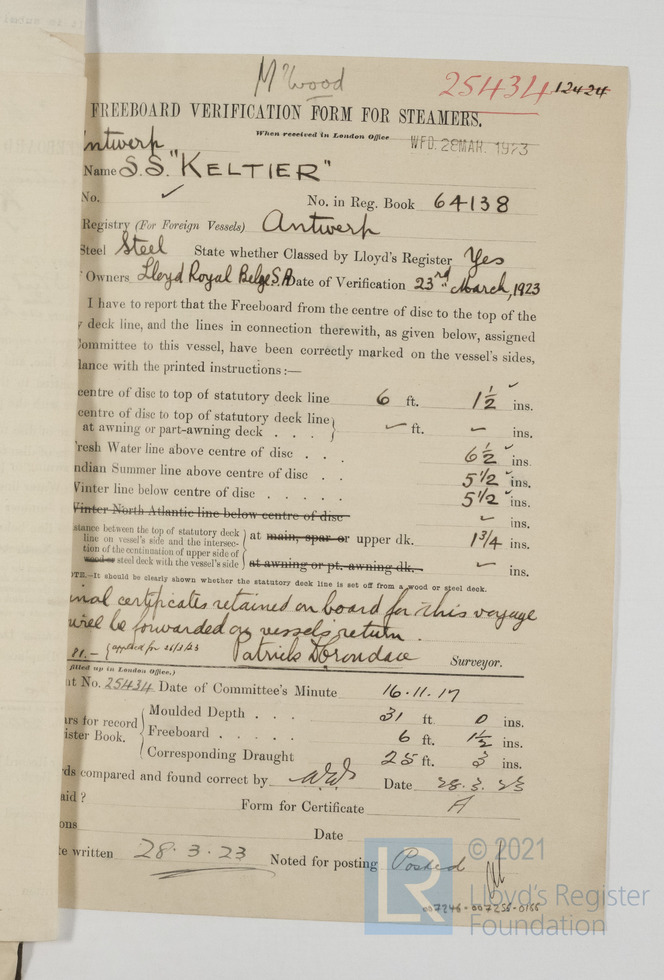 25434 12424
FREEBOARD VERIFICATION FORM FOR STEAMERS.
When received in London Office WED. 28 MAR. 1923
ntwerp
Name S.S. "KELTIER"
No. ✓ No. in Reg. Book 64138
Registry (For Foreign Vessels) Antwerp
Steel Steel State whether Classed by Lloyd's Register Yes
Owners Lloyd Royal Belge S.A Date of Verification 23rd March, 1923
I have to report that the Freeboard from the centre of disc to the top of the
y deck line, and the lines in connection therewith, as given below, assigned
ommittee to this vessel, have been correctly marked on the vessel's sides,
dance with the printed instructions:—
centre of disc to top of statutory deck line 6 ft. 1½ ins.
centre of disc to top of statutory deck line
at awning or part-awning deck . . . ft. ins.
resh Water line above centre of disc . . . 6½ ins.
ndian Summer line above centre of disc . . 5½ ins.
Winter line below centre of disc . . . . . 5½ ins.
Winter North Atlantic line below centre of disc ins.
stance between the top of statutory deck
line on vessel's side and the intersec-
tion of the continuation of upper side of
wood or steel deck with the vessel's side
at main, spar or upper dk. 1¾ ins.
at awning or pt. awning dk. ins.
OTE.—It should be clearly shown whether the statutory deck line is set off from a wood or steel deck.
inal certificates retained on board for this voyage
will be forwarded on vessel's return.
Patrick Surveyor.
filled up in London Office.)
nt No. 25434 Date of Committee's Minute 16.11.17
ars for record
ister Book.
Moulded Depth . . . 31 ft. 0 ins.
Freeboard . . . . . 6 ft. 1½ ins.
Corresponding Draught 25 ft. 3 ins.
ds compared and found correct by Date 28.3.23
aid? Form for Certificate A
ons Date
te written 28.3.23 Noted for posting Posted
LR
© 2021
Lloyd's Register
Foundation
007246-007256-0166